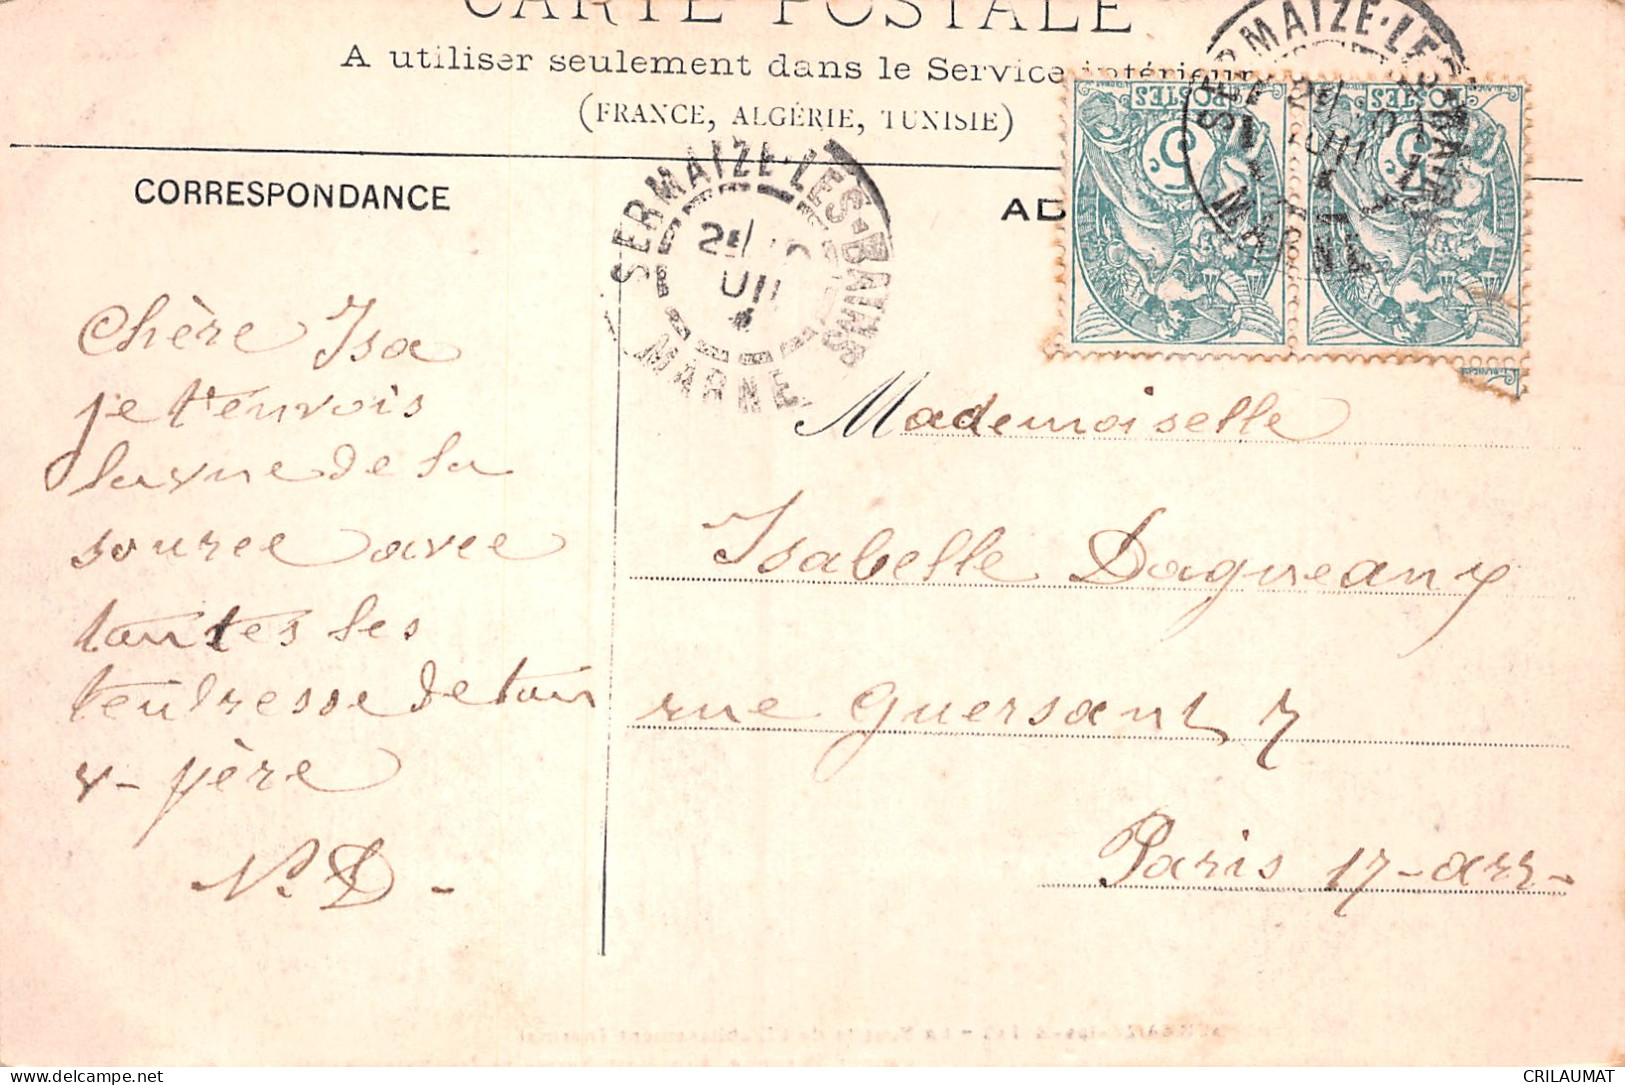 CARTE POSTALE
A utiliser seulement dans le Service intérieur
(FRANCE, ALGÉRIE, TUNISIE)
CORRESPONDANCE
AD
SERMAIZE-LES-BAINS
MARNE
SERMAIZE-LES-BAINS
POSTES
5
POSTES
5
chère Isa
je t'envois
la vue de la
source avec
tantes les
tendresse de ton
père
N. D -
Mademoiselle
Isabelle Dagneany
rue Guersant 7
Paris 17-arr-
CRILAUMAT